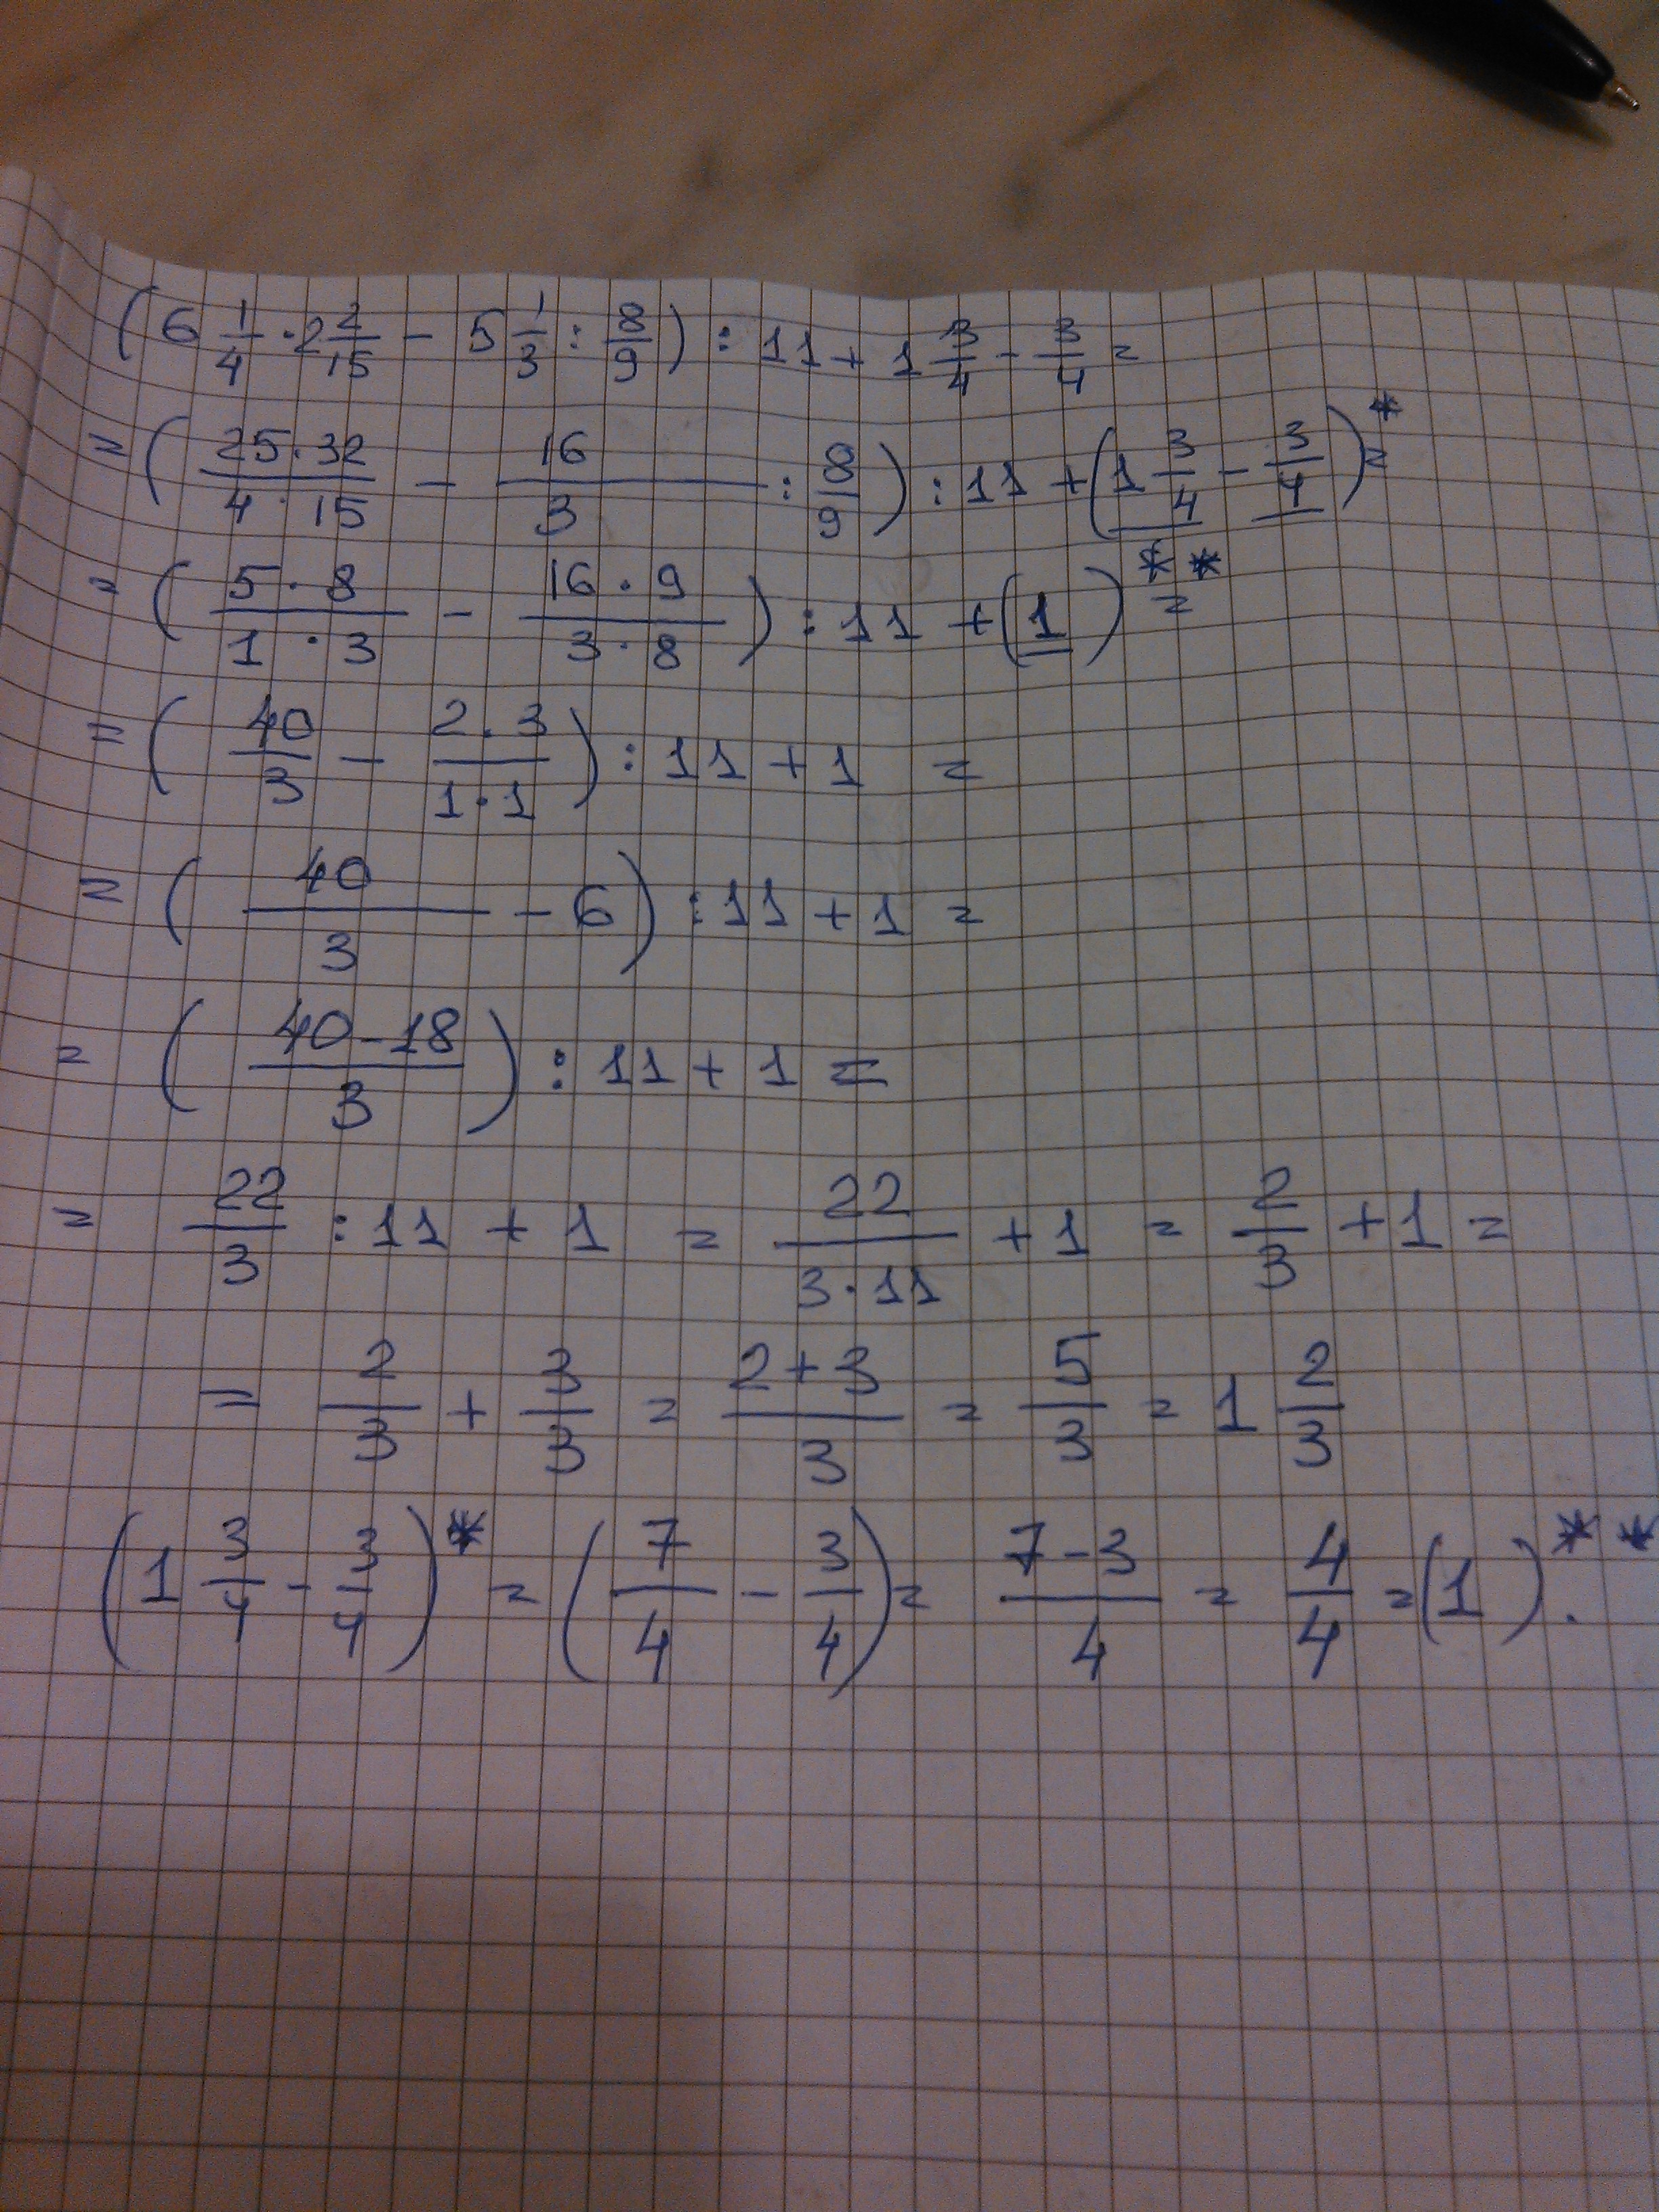 (6 1/4 · 2 2/15 - 5 1/3 : 8/9) : 11 + 1 3/4 - 3/4 =
= (25·32/4·15 - 16/3 : 8/9) : 11 + (1 3/4 - 3/4)* =
= (5·8/1·3 - 16·9/3·8) : 11 + (1)** =
= (40/3 - 2·3/1·1) : 11 + 1 =
= (40/3 - 6) : 11 + 1 =
= (40-18/3) : 11 + 1 =
= 22/3 : 11 + 1 = 22/3·11 + 1 = 2/3 + 1 =
= 2/3 + 3/3 = 2+3/3 = 5/3 = 1 2/3
(1 3/4 - 3/4)* = (7/4 - 3/4) = 7-3/4 = 4/4 = (1)**.